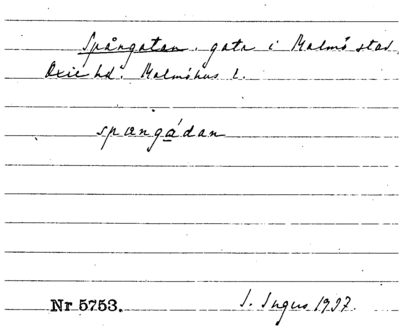 Spångatan, gata i Malmö stad
Oxie hd. Malmöhus l.
spæng​ádan
Nr 5753. S. Ingers 1937.